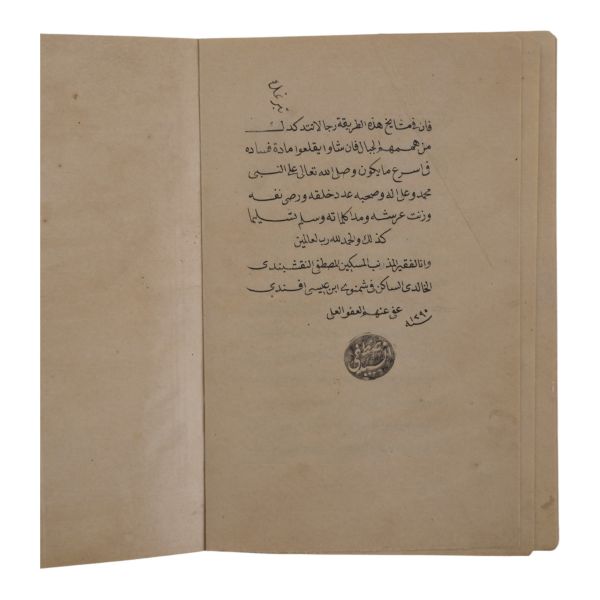 فان في مشايخ هذه الطريقة رجالا تندكدك
من هممهم الجبال فان شاوا يقلعوا مادة فساده
في اسرع ما يكون وصلى الله تعالى على النبى
محمد وعلى اله وصحبه عدد خلقه ورضى نفسه
وزنت عرشه ومداد كلماته وسلم تسليما
كذلك والحمد لله رب العالمين
وانا الفقير المذنب المسكين المصطفى النقشبندى
الخالدى الساكن في شمنوى ابن عيسى افندي
عفى عنهم العفو العلى
سنة ١٢٩٥